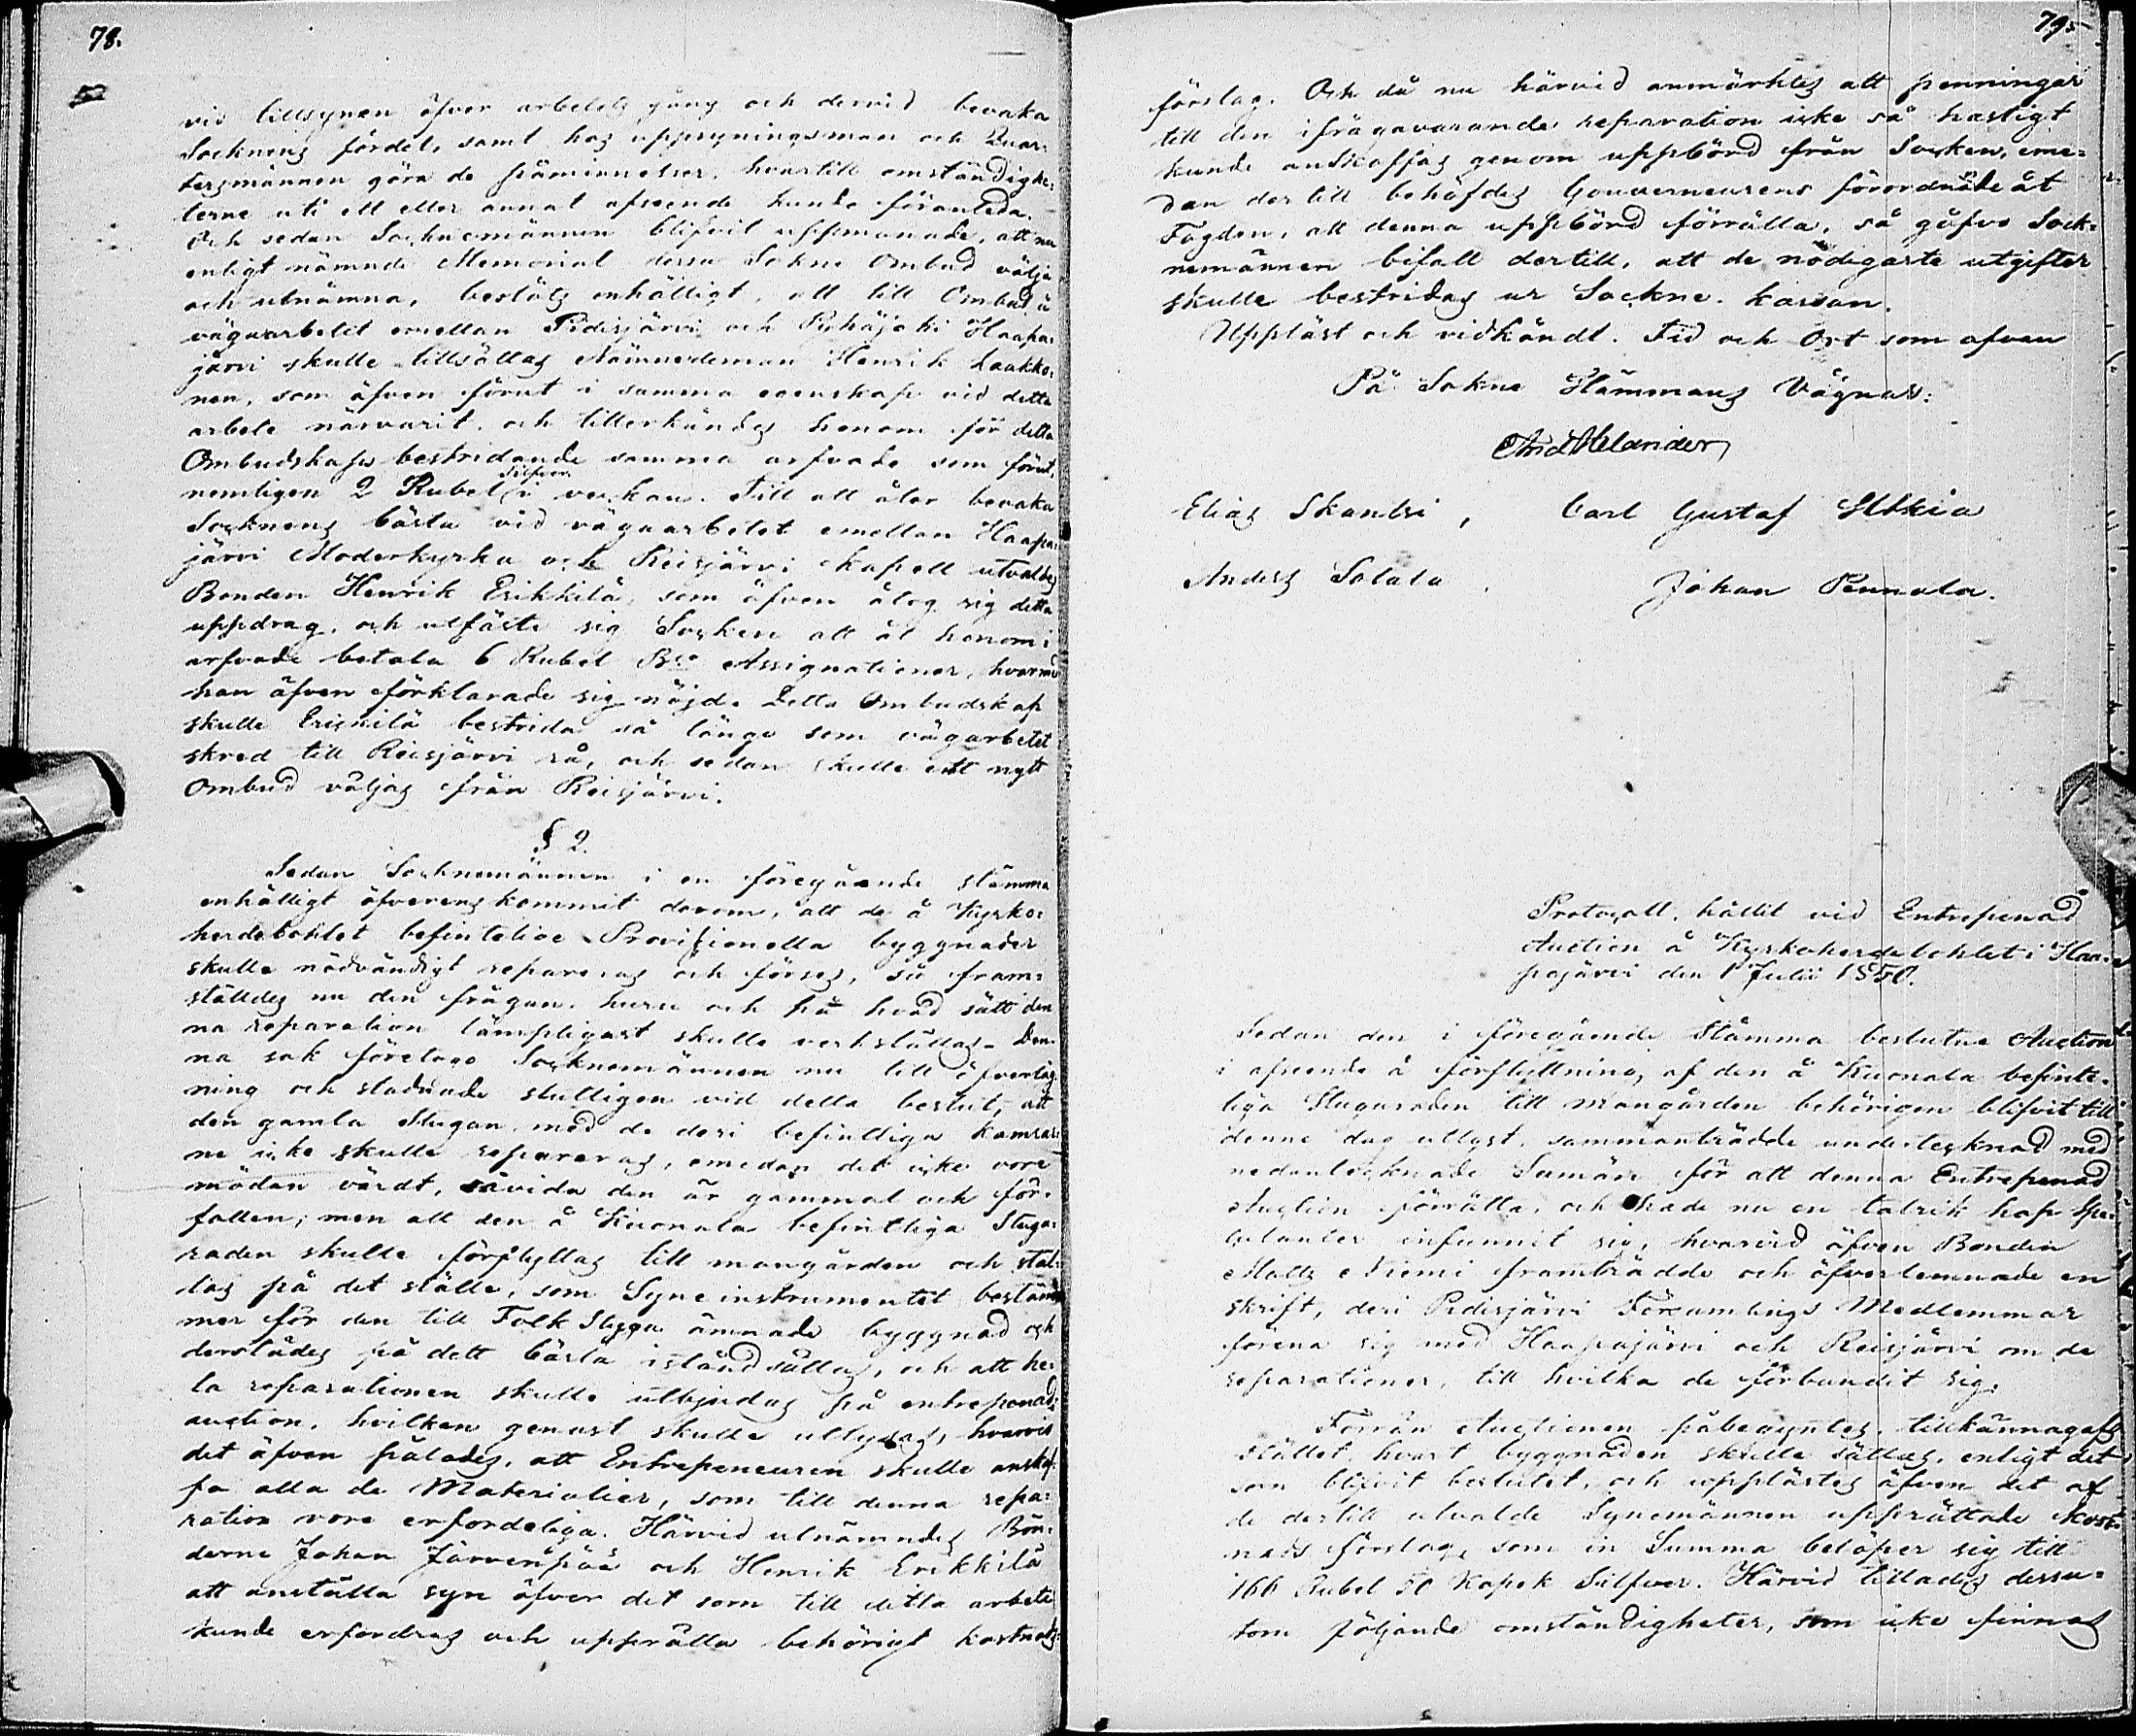 78.
vid tillsynen öfver arbetets gång och dervid bevaka
Socknens fördel, samt hos uppsyningsman och Quar=
tersmännen göra de påminnelser, hvartill omständighe=
terne uti ett eller annat afseende kunde föranleda.
Och sedan Socknemännen blifvit uppmanade, att nu
enligt nämnde Memorial dessa Sokne Ombud välja
och utnämna, beslöts enhälligt, att till Ombud å
vägaarbetet emellan Pidisjärvi och Pyhäjoki Haapa=
järvi skulle tillsättas Nämnedeman Henrik Laakko=
nen, som äfven förut i samma egenskap vid detta
arbete närvarit, och tillerkändes honom för detta
Ombudskaps bestridande samma arfvode som förut,
nemligen 2 Rubel Silfver i veckan. Till att åter bevaka
Socknens bästa vid vägaarbetet emellan Haapa=
järvi Moderkyrka och Reisjärvi Kapell utvaldes
Bonden Henrik Erikkilä, som äfven åtog sig detta
uppdrag, och utfäste sig Socken att åt honom i
arfvode betala 6 Rubel Bco Assignationer, hvarmed
han äfven förklarade sig nöjd. Detta Ombudskap
skulle Erickilä bestrida så länge som vägarbetet
skred till Reisjärvi rå, och sedan skulle ett nytt
Ombud väljas från Reisjärvi.
§ 2.
Sedan Socknemännen i en föregående stämma
enhälligt öfverenskommit derom, att de å Kyrko=
herdebohlet befintelige Provisionella byggnader
skulle nödvändigt repareras och förses, så fram=
ställdes nu den frågan, huru och på hvad sätt den
na reparation lämpligast skulle verkställas. Den
na sak företogo Socknemännen nu till öfverläg
ning och stadnade slutligen vid detta beslut, att
den gamla Stugan med de deri befintliga kamrar
ne icke skulle repareras, emedan det icke vore
mödan värdt, såvida den är gammal och för=
fallen; men att den å Kuonala befintliga Stuga=
raden skulle förflyttas till mangården och stäl=
las på det ställe, som Syneinstrumentet bestäm
mer för den till Folk Stuga ämnade byggnad och
derstädes på dett bästa iståndsättas, och att he=
la reparationen skulle utbjudas på entrepenad=
auction, hvilken genast skulle utlysas, hvarvid
det äfven pålades, att Entrepeneuren skulle anskaf=
fa alla de Materialier, som till denna repa=
ration vore erfordeliga. Härvid utnämndes Bön=
derne Johan Järvenpää och Henrik Erikkilä
att anställa syn öfver det som till detta arbete
kunde erfordras och upprätta behörigt kostnads=
79.
förslag. Och då nu härvid anmärktes att penningar
till den ifrågavarande reparation icke så hastigt
kunde anskaffas genom uppbörd från Socken, eme=
dan dertill behöfdes Gouverneurens förordnande åt
Fogden, att denna uppbörd förrätta, så gåfvo Sock=
nemännen bifall dertill, att de nödigaste utgifter
skulle bestridas ur Sockne. kassan.
Uppläst och vidkändt. Tid och Ort som ofvan
På Sokne Stämmans Vägnar:
And Helander
Elias Skantsi, Carl Gustaf
Anders Solala. Johan Pennala.
Protocoll, hållit vid Entrepenad
Auction å Kyrkoherdebohlet i Haa=
pajärvi den 1 Julii 1850.
Sedan den i föregående Stämma beslutne Auction
i afseende å förflyttning af den å Kuonala befinte=
liga Stugaraden till mangården behörigen blifvit till
denne dag utlyst, sammanträdde undertecknad med
nedantecknade Sumän för att denna Entrepenad
Auction förrätta, och hade nu en talrik hop Spe=
culanter infunnit sig, hvarvid äfven Bonden
Matts Niemi framträdde och öfverlemnade en
skrift, deri Pidisjärvi Församlings Medlemmar
förena sig med Haapajärvi och Reisjärvi om de
reparationer, till hvilka de förbundit sig.
Förrän Auctionen påbegyntes, tillkännagafs
stället hvart byggnaden skulle sättas, enligt det
som blifvit beslutet, och upplästes äfven det af
de dertill utvalde Synemännen upprättade Kost=
nads förslag, som in Summa belöper sig till
166 Rubel 50 Kopek Silfver. Härvid tillades dessu=
tom följande omständigheter, som icke finnas